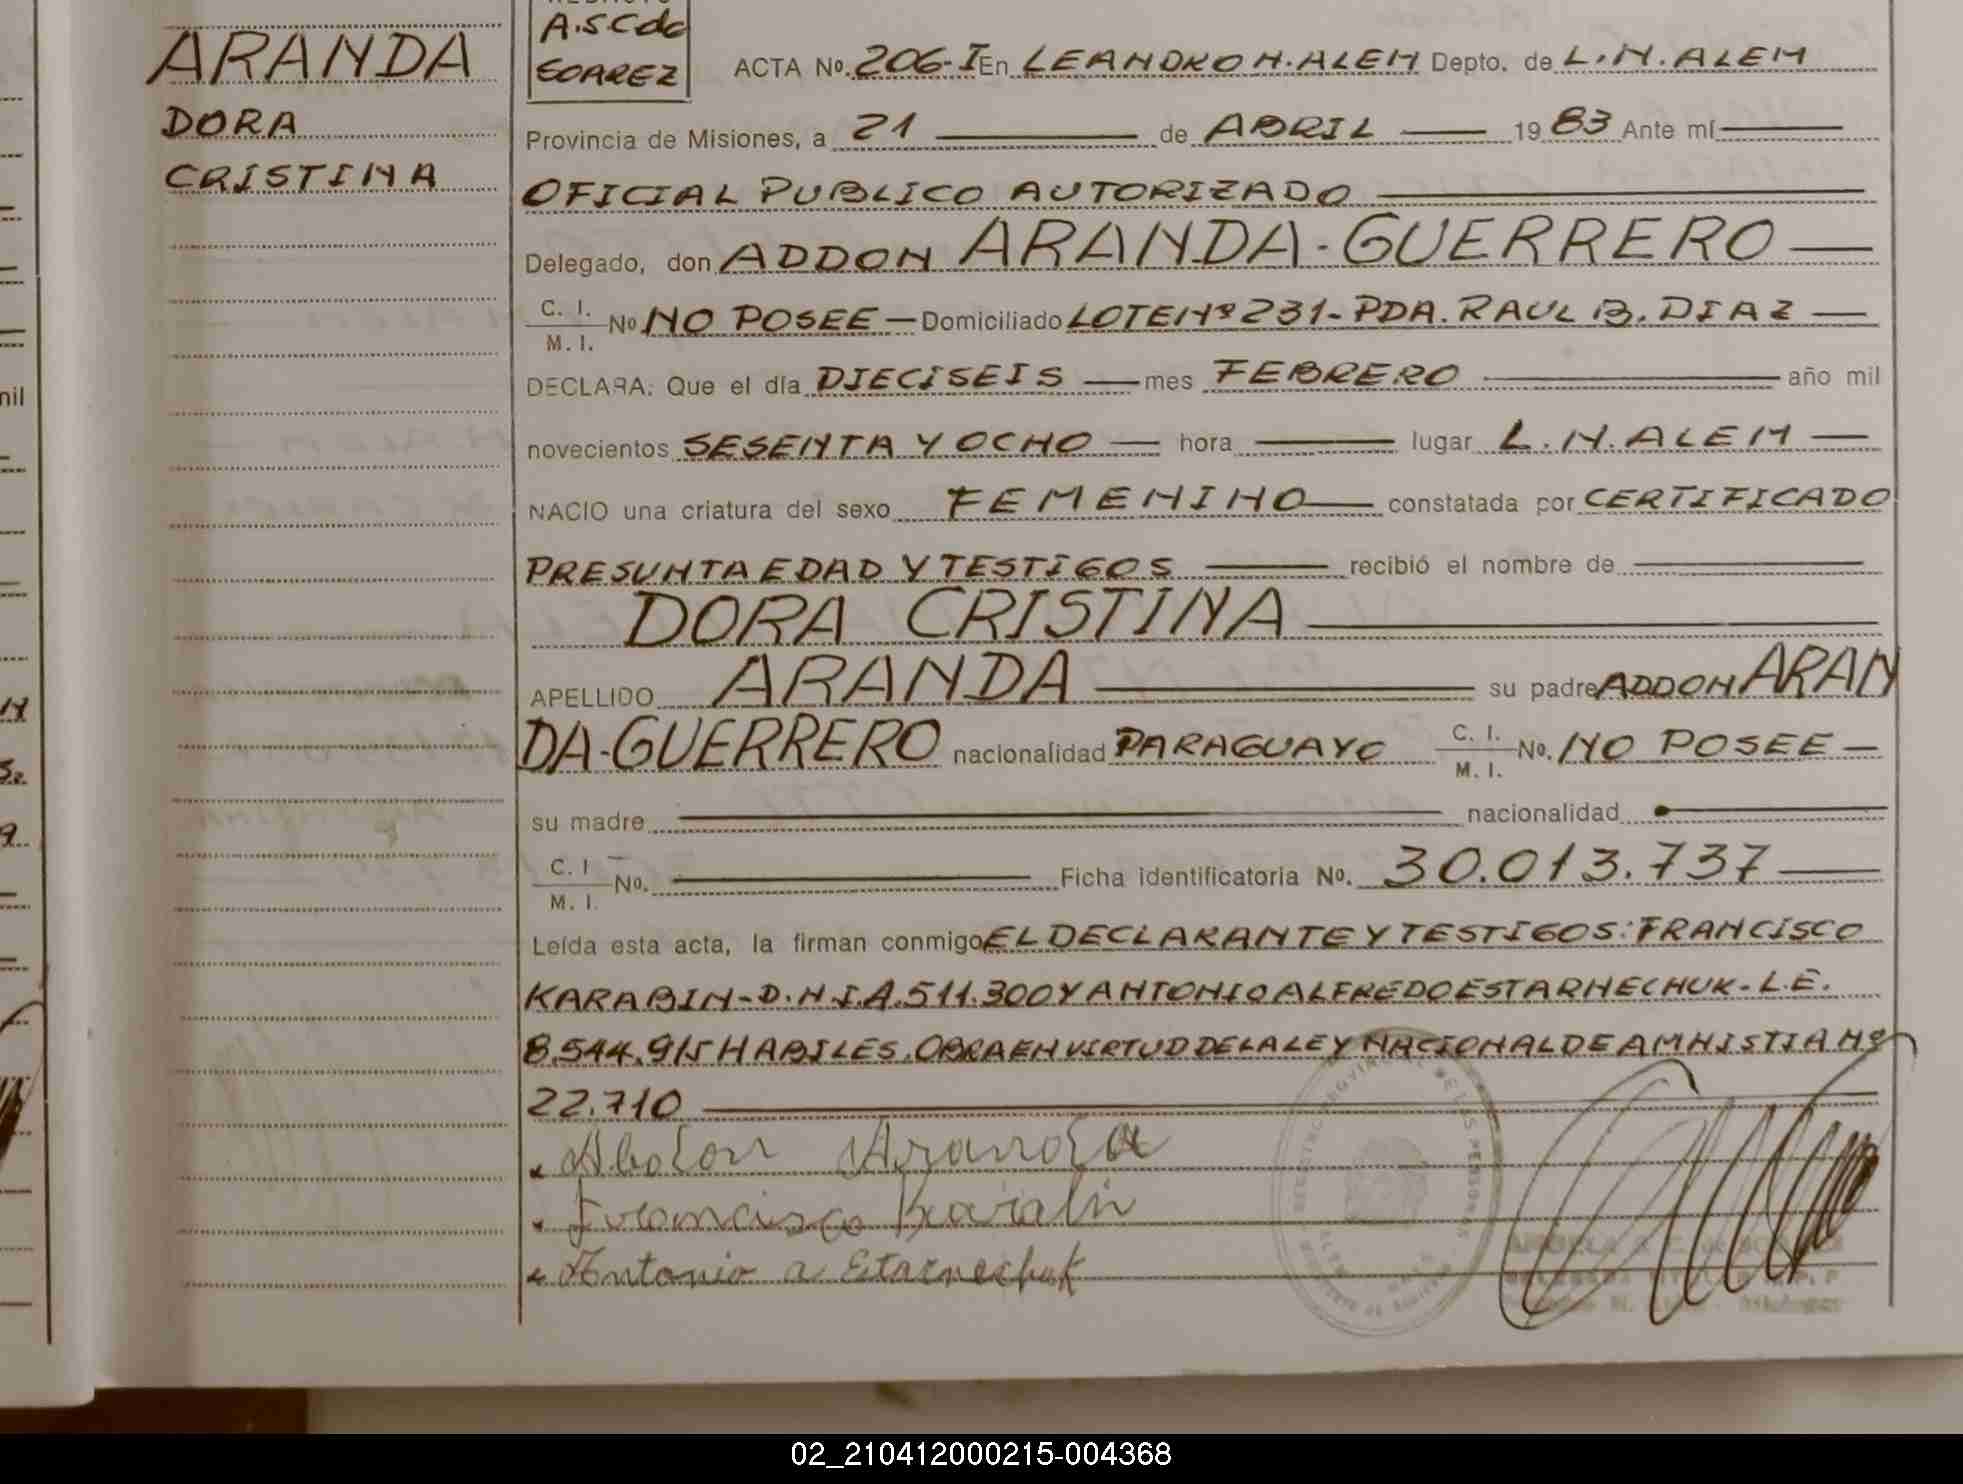 ARANDA
DORA
CRISTINA
REDACTO
A.S.C de
SOAREZ
ACTA No. 206-I En LEANDRO N. ALEM Depto. de L.N. ALEM
Provincia de Misiones, a 21 de ABRIL 19 83 Ante mí
OFICIAL PUBLICO AUTORIZADO
Delegado, don ADDON ARANDA-GUERRERO
C. I. / M. I. No NO POSEE — Domiciliado LOTE Nº 231- PDA. RAUL B. DIAZ
DECLARA: Que el día DIECISEIS mes FEBRERO año mil
novecientos SESENTA Y OCHO hora lugar L.N. ALEM
NACIO una criatura del sexo FEMENINO constatada por CERTIFICADO
PRESUNTA EDAD Y TESTIGOS recibió el nombre de
DORA CRISTINA
APELLIDO ARANDA su padre ADDON ARAN
DA-GUERRERO nacionalidad PARAGUAYO C. I. / M. I. No. NO POSEE —
su madre nacionalidad
C. I / M. I. No. Ficha identificatoria No. 30.013.737
Leída esta acta, la firman conmigo EL DECLARANTE Y TESTIGOS: FRANCISCO
KARABIN-D.N.I.A. 511.300 Y ANTONIO ALFREDO ESTARNECHUK-L.E.
8.544.915 HABILES. OBRA EN VIRTUD DE LA LEY NACIONAL DE AMNISTIA Nº
22.710
Abdon Aranda
Francisco Karabin
Antonio a Etarnechuk
nil
02_210412000215-004368